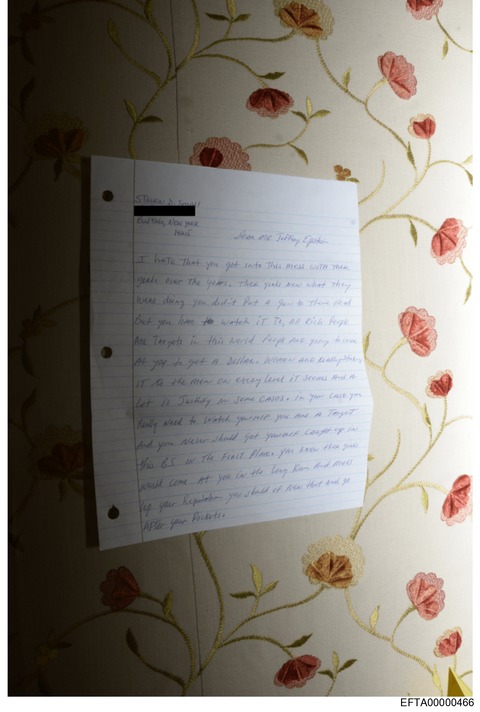 Steven D.
Buffalo, New York
Dear Mr. Jeffrey Epstein
I hate that you got into this mess with these
girls over the years. These girls knew what they
were doing you didn't Put A gun to there Head
But you have to watch it To, All Rich People
Are Targets in this World People Are going to come
At you to get A Dollar. Women Are Really
it to the men on every level it seems And A
Lot is Justify in some cases. In your case you
Really need to watch yourself you Are A Target
And you Never should got yourself caught up in
this BS in The First Place. you knew these girls
would come At you in the Long Run And
up your Reputation you should of knew that And go
After your Pockets.
EFTA00000466